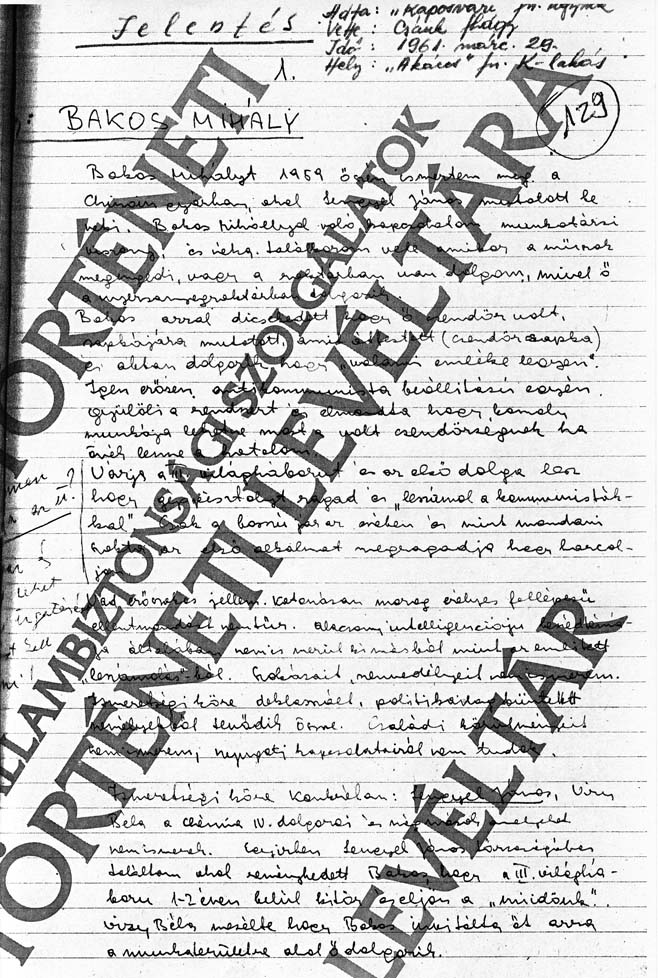 Jelentés
Adta: „Kaposvári" fn. ügynök
Vette: Csánk Nagy
Idő: 1961. márc. 29.
Hely: „Akácos" fn. K-lakás
1.
129
BAKOS MIHÁLY
Bakos Mihályt 1959 őszén ismertem meg a
Chinoin gyárban, ahol Lengyel János mutatott be
neki. Bakos Mihállyal való kapcsolatom munkatársi
viszony, és néha találkozom vele amikor a műszak
megengedi, vagy a raktárban van dolgom, mivel ő
a nyersanyagraktárban dolgozik.
Bakos azzal dicsekedett hogy ő csendőr volt,
sapkájára mutatott, amit átfestett (csendőr sapka)
és abban dolgozik hogy „valami emléke legyen".
Igen erősen antikommunista beállítású egyén,
gyűlöli a rendszert és elmondta hogy komoly
munkája lehetne most a volt csendőrségnek ha
övék lenne a hatalom.
Várja a III. világháborút és az első dolga lesz
hogy géppisztolyt ragad és „leszámol a kommunisták-
kal". Csak a bosszú jár az eszében és mint mondani
szokta az első alkalmat megragadja hogy harcol-
jon.
erőszakos jellem. Katonásan mozog erélyes fellépésű
ellentmondást nem tűr. Alacsony intelligenciájú
általában nem is merül ki másból mint az említett
„leszámolás"-ból. Szokásait, szenvedélyeit nem ismerem.
Ismeretségi köre deklasszált, politikailag büntetett
személyekből tevődik össze. Családi körülményeit
nem ismerem, nyugati kapcsolatairól nem tudok.
Ismeretségi köre konkrétan: Lengyel János, Vizy
Béla a Chémia IV. dolgozói és még mások, melyeket
nem ismerek. Egyízben Lengyel János társaságában
találtam ahol reménykedett Bakos, hogy a III. világhá-
ború 1-2 éven belül kitör s eljön a „mi időnk".
Vizy Béla mesélte hogy Bakos invitálta őt arra
a munkaterületre ahol ő dolgozik.
TÖRTÉNETI
ÁLLAMBIZTONSÁGI SZOLGÁLATOK
TÖRTÉNETI LEVÉLTÁRA
LEVÉLTÁR